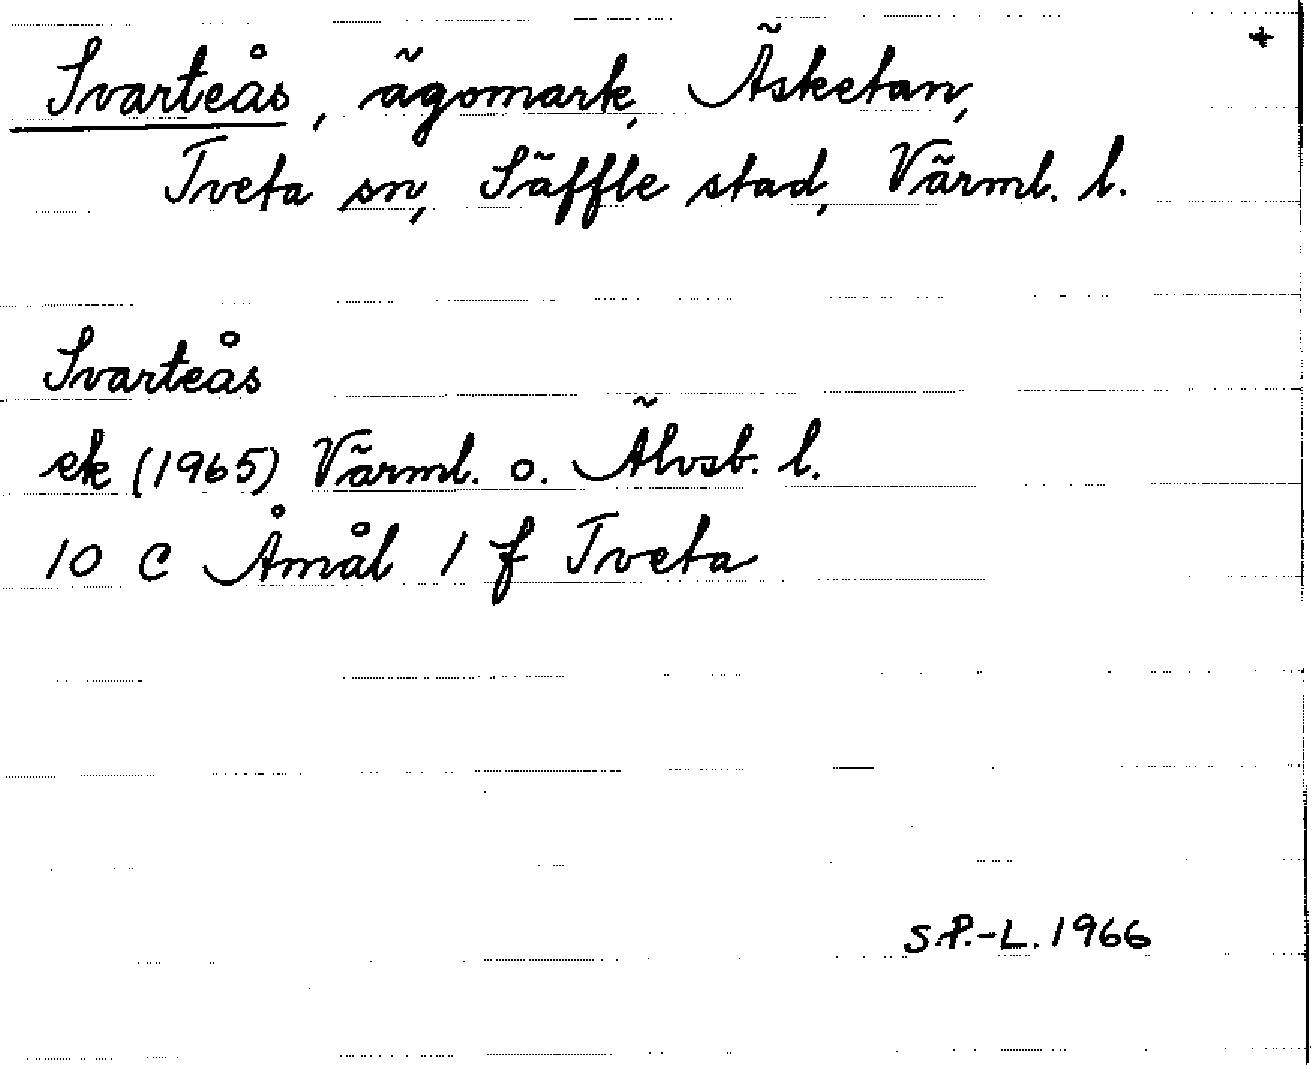 +
Svarteås, ägomark, Äsketan,
Tveta sn, Säffle stad, Värml. l.
Svarteås
ek (1965) Värml. o. Älvsb. l.
10 C Åmål 1 f Tveta
S.P.-L. 1966